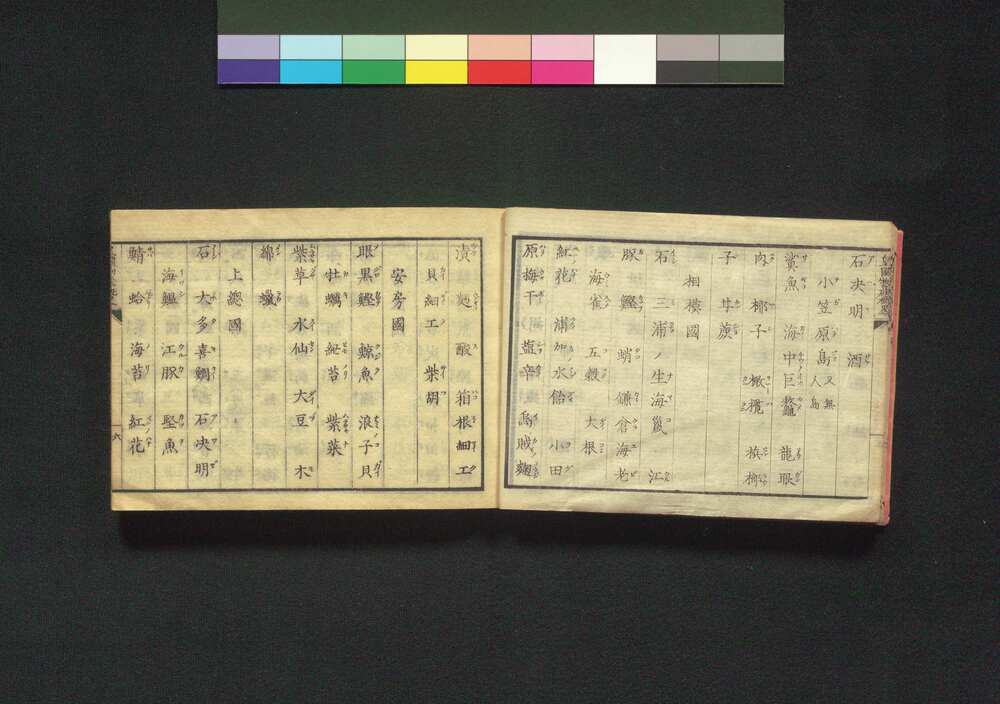 石决明 酒
小笠原島 又無人島
鱟魚 海中巨鼇 龍眼
肉 椰子 橄欖 檳榔
子
相模國
石 三浦ノ生海鼠 江
豚 鰹 蛸 鎌倉海老
海雀 五穀 大根
紅花 浦加水飴 小田
原梅干 塩辛 烏賊麹
漬 麹 酸 箱根細工
貝細工 柴胡
安房國
眼黒鰹 鯨魚 浪子貝
牡蠣 紫菜
紫草 水仙 大豆 木
綿
上總國
石 大多喜鯛 石决明
海鰮 江豚 堅魚
蜻蛤 海苔 紅花
六